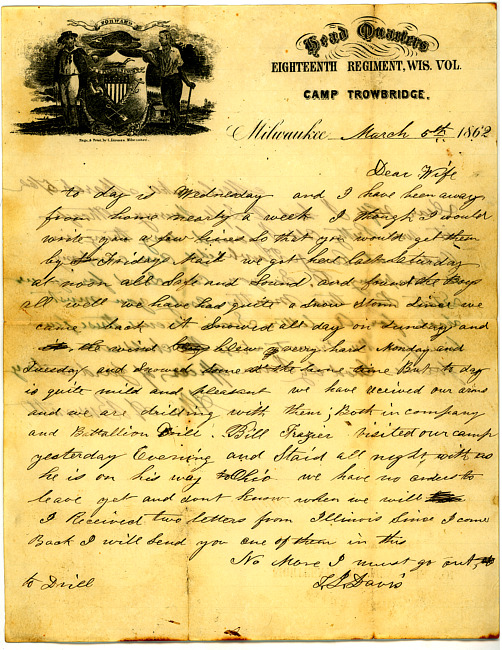 FORWARD
Head Quarters
EIGHTEENTH REGIMENT, WIS. VOL.
CAMP TROWBRIDGE,
Milwaukee March 5th 1862
Dear Wife
to day is Wednesday and I have been away
from home nearly a week I though I would
write you a few lines so that you would get them
by Fridays Mail we got here last Saturday
at noon all Safe and Sound and found the Boys
all well we have had quite a snow storm Since we
came back it snowed all day on Sunday and
the wind blew very hard Monday and
Tuesday and snowed some at the same time But to day
is quite mild and pleasant we have received our arms
and we are drilling with them; Both in company
and Battallion Drill. Bill Frazier visited our camp
yesterday Evening and Staid all night with us
he is on his way to Ohio we have no orders to
leave yet and dont know when we will
I Received two letters from Illinois Since I come
Back I will Send you one of them in this
No More I must go out
to Drill
Davis